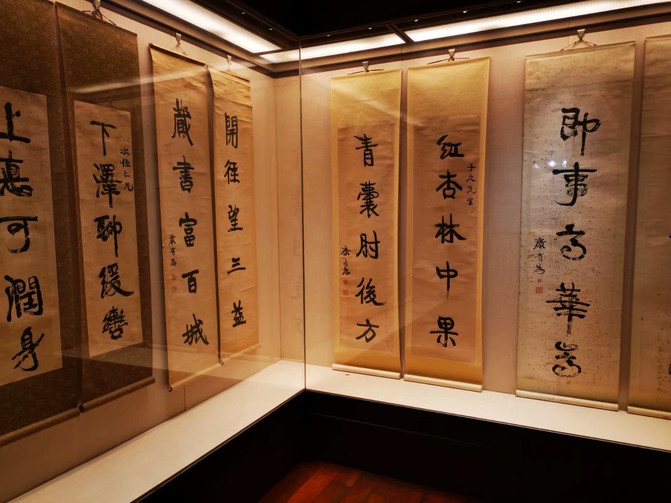 即事高華嵩
康有為
紅杏林中果
子文先生
青囊肘後方
康有為
開徑望三益
藏書富百城
康有為
下澤聊緩轡
上惪可潤身